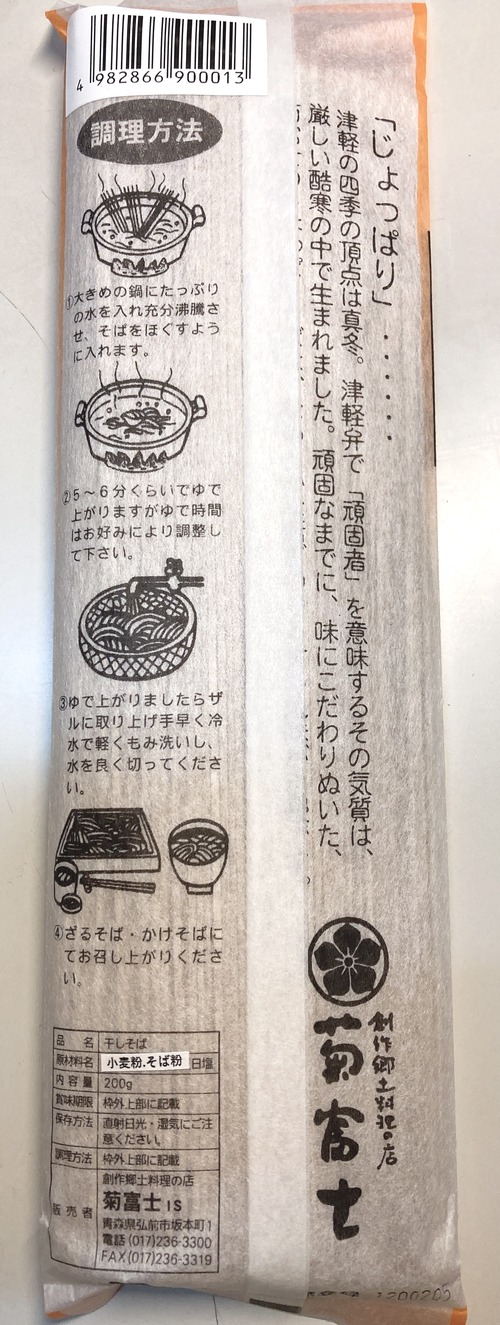 4 982866 900013
調理方法
①大きめの鍋にたっぷり
の水を入れ充分沸騰さ
せ、そばをほぐすよう
に入れます。
②5～6分くらいでゆで
上がりますがゆで時間
はお好みにより調整し
て下さい。
③ゆで上がりましたらザ
ルに取り上げ手早く冷
水で軽くもみ洗いし、
水を良く切ってくださ
い。
④ざるそば・かけそばに
てお召し上がりくださ
い。
「じょっぱり」・・・・・・
津軽の四季の頂点は真冬。津軽弁で「頑固者」を意味するその気質は、
厳しい酷寒の中で生まれました。頑固なまでに、味にこだわりぬいた、
創作郷土料理の店
菊富士
品名 干しそば
原材料名 小麦粉.そば粉 日塩
内容量 200g
賞味期限 枠外上部に記載
保存方法 直射日光・湿気にご注
意ください。
調理方法 枠外上部に記載
販売者 創作郷土料理の店
菊富士IS
青森県弘前市坂本町1
電話(017)236-3300
FAX(017)236-3319